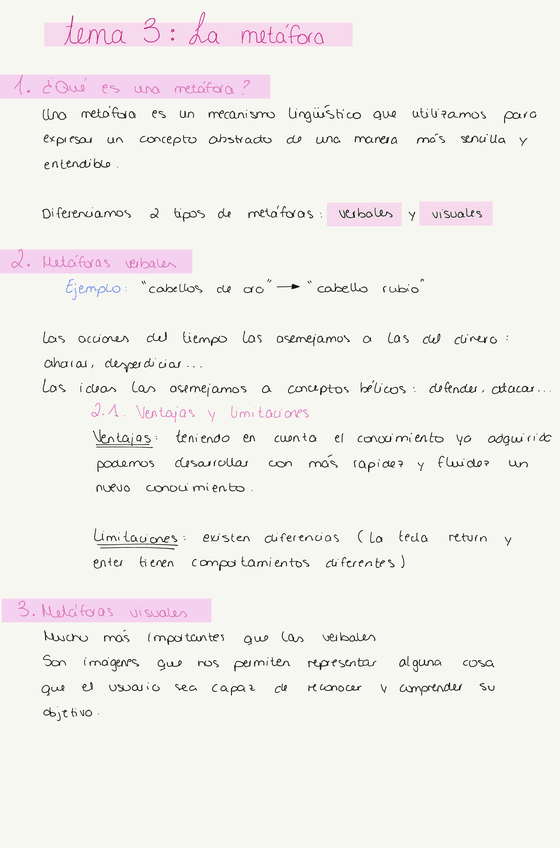 tema 3: La metáfora
1. ¿Qué es una metáfora?
Una metáfora es un mecanismo lingüístico que utilizamos para
expresar un concepto abstracto de una manera más sencilla y
entendible.
Diferenciamos 2 tipos de metáforas: verbales y visuales
2. Metáforas verbales
Ejemplo: "cabellos de oro" → "cabello rubio"
Las acciones del tiempo las asemejamos a las del dinero:
ahorrar, desperdiciar...
Las ideas las asemejamos a conceptos bélicos: defender, atacar...
2.1. Ventajas y limitaciones
Ventajas: teniendo en cuenta el conocimiento ya adquirido
podemos desarrollar con más rapidez y fluidez un
nuevo conocimiento.
Limitaciones: existen diferencias (la tecla return y
enter tienen comportamientos diferentes)
3. Metáforas visuales
Mucho más importantes que las verbales
Son imágenes que nos permiten representar alguna cosa
que el usuario sea capaz de reconocer y comprender su
objetivo.